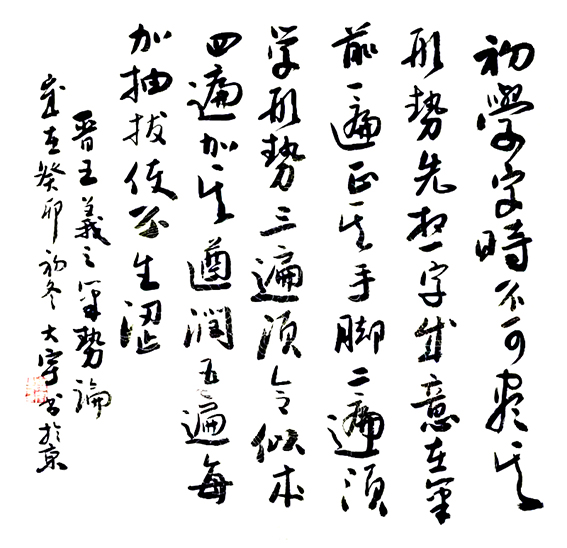 初學字時不可盡其
形勢先想字成意在筆
前一遍正其手脚二遍須
学形勢三遍須令似本
四遍加其遒潤五遍每
加抽拔使不生澀
晋王羲之筆勢論
歲在癸卯初冬大宇書於京